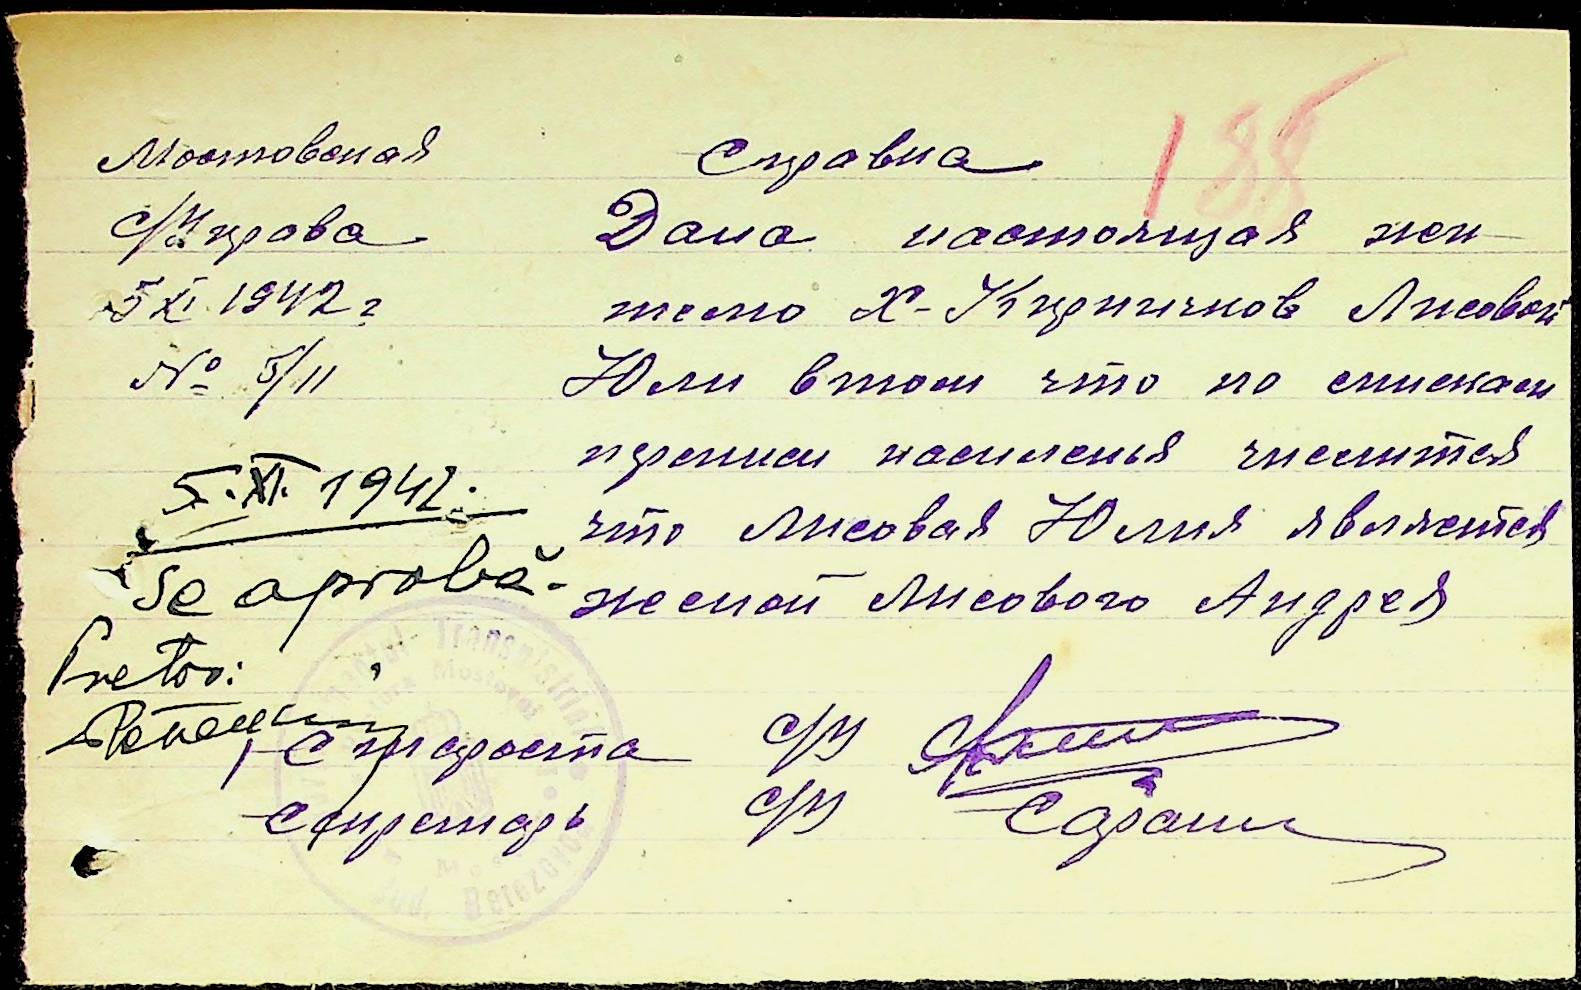 188
Мостовская
с/Управа
5 XI 1942 г
№ 5/11
Справка
Дана настоящая жи-
телю х-Кирпичнов Лисовой
Юли в том что по спискам
преписи населенья числится
что Лисовая Юлия является
женой Лисового Андрея
5.XI.1942.
se aprobă.
Pretor:
Староста с/у
Секретарь с/у
Transnistriei
Mostovoi
Jud. Berezovca